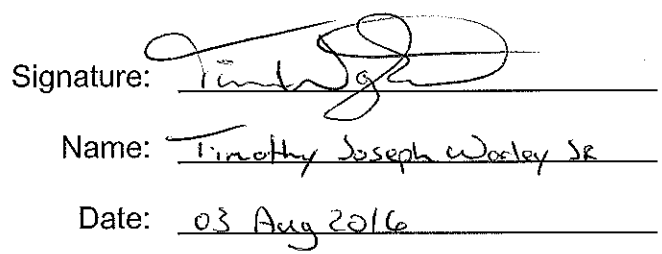 Signature:
Name: Timothy Joseph Worley JR
Date: 03 Aug 2016